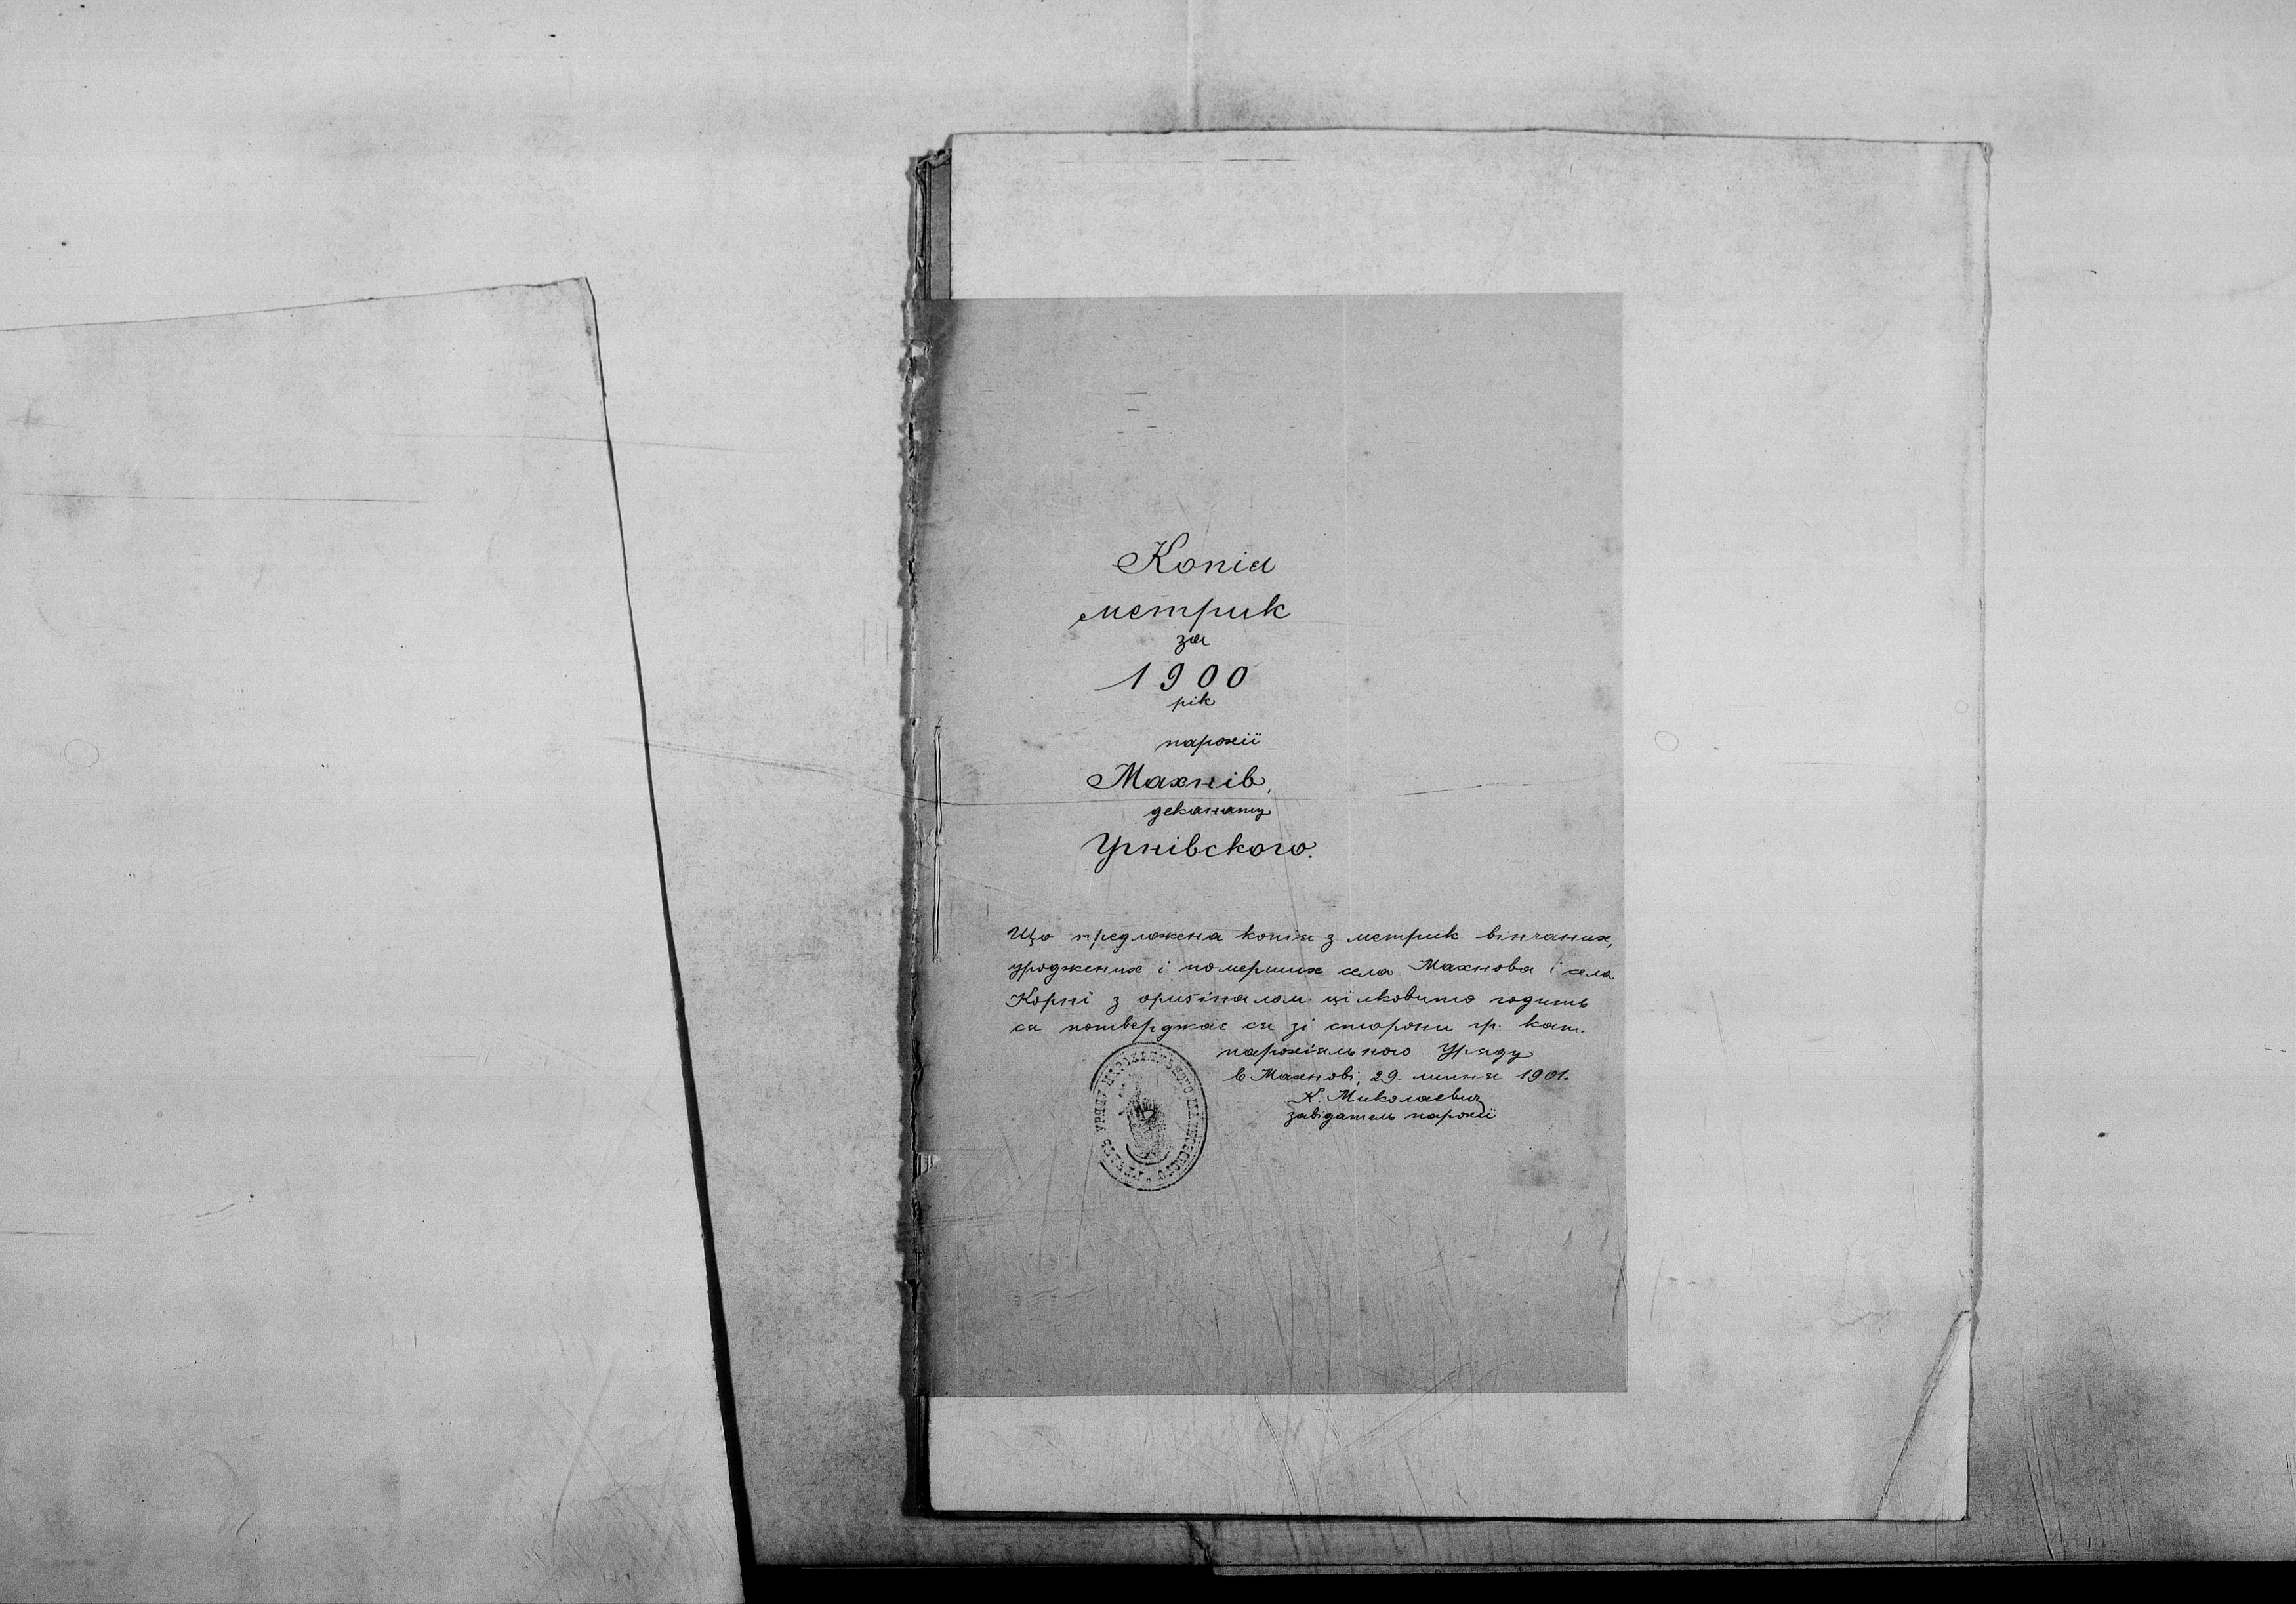 Копія
метрик
за
1900
рік
парохії
Махнів,
деканату
Угнівского.
Що предложена копія з метрик вінчаних,
уроджених і померших села Махнова і села
Корні з ориґіналом цїлковито годить
ся потверджає ся зі сторони гр. кат.
парохіяльного Уряду
в Махнові, 29. липня 1901.
К. Миколаєвич
завідатель парохії
УРЯДУ ПАРОХІЯЛЬНОГО